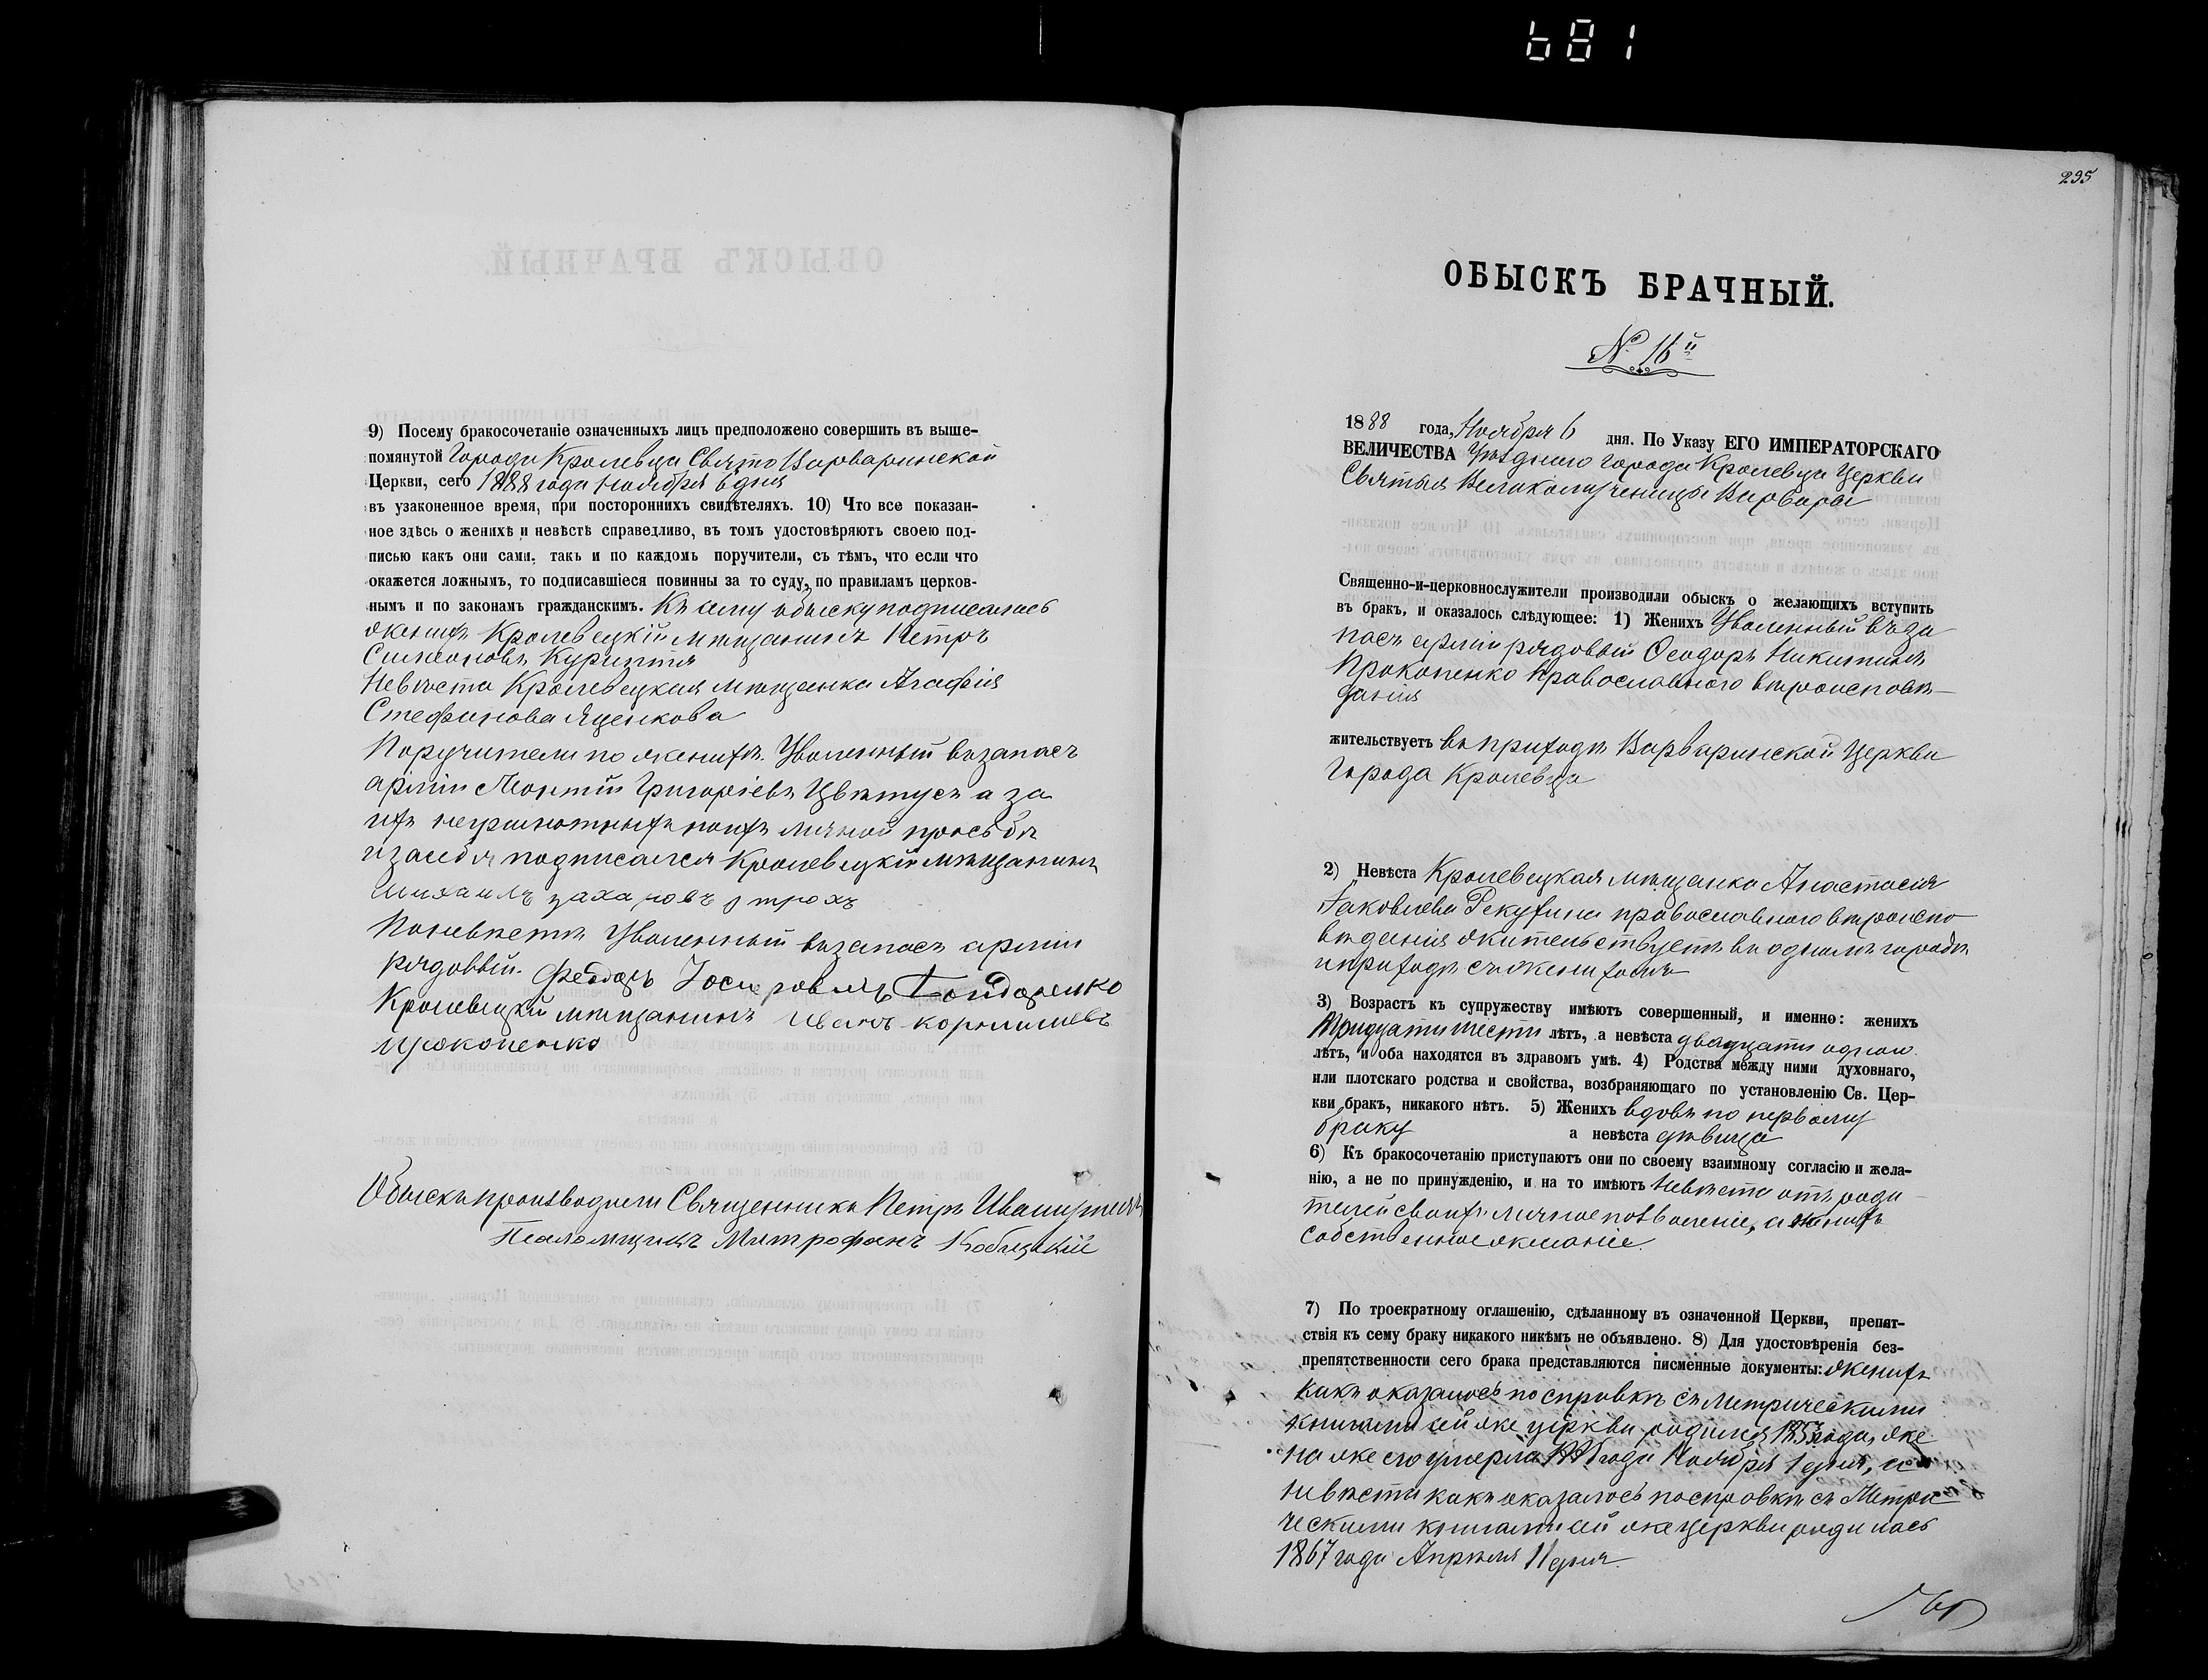 681
9) Посему бракосочетаніе означенныхъ лицъ предположено совершить въ выше-
помянутой Города Кролевца Свято Варваринской
Церкви, сего 1888 года Ноября 6 дня
въ узаконенное время, при постороннихъ свидѣтеляхъ. 10) Что все показан-
ное здѣсь о женихѣ и невѣстѣ справедливо, въ томъ удостовѣряютъ своею под-
писью какъ они сами, такъ и по каждомъ поручители, съ тѣмъ, что если что
окажется ложнымъ, то подписавшіеся повинны за то суду, по правиламъ церков-
нымъ и по законамъ гражданскимъ. Къ сему обыску подписались
женихъ Кролевецкій мѣщанинъ Петръ
Симеоновъ
Невѣста Кролевецкая мѣщанка Агафія
Стефанова Яценкова
Поручители по женихѣ. Уволенный въ запасъ
арміи Леонтій Григоріевъ Цвѣтусъ а за
ихъ неграмотныхъ по ихъ личной просьбѣ
и за себя подписался Кролевецкій мѣщанинъ
Михаилъ Захаровъ
По невѣстѣ Уволенный въ запасъ арміи
рядовый. Феодоръ Бондаренко
Кролевецкій мѣщанинъ Иванъ Корнилиевъ
Прокопенко
Обыскъ производили Священникъ Петръ
Псаломщикъ Митрофанъ
295
ОБЫСКЪ БРАЧНЫЙ.
№ 16й
1888 года, Ноября 6 дня. По Указу ЕГО ИМПЕРАТОРСКАГО
ВЕЛИЧЕСТВА Уѣзднаго города Кролевца Церкви
Святыя Великомученицы Варвары
Священно-и-церковнослужители производили обыскъ о желающихъ вступить
въ бракъ, и оказалось слѣдующее: 1) Женихъ Уволенный въ за
пасъ арміи рядовый Ѳеодоръ Никитинъ
Прокопенко Православнаго вѣроисповѣ-
данія
жительствуетъ въ приходѣ Варваринской Церкви
Города Кролевца
2) Невѣста Кролевецкая мѣщанка Анастасія
Іаковлева Рекухина православнаго вѣроиспо
вѣданія жительствуетъ въ одномъ городѣ
и приходѣ съ женихомъ
3) Возрастъ къ супружеству имѣютъ совершенный, и именно: женихъ
Тридцати шести лѣтъ, а невѣста двадцати одного
лѣтъ, и оба находятся въ здравомъ умѣ. 4) Родства между ними духовнаго,
или плотскаго родства и свойства, возбраняющаго по установленію Св. Цер-
кви бракъ, никакого нѣтъ. 5) Женихъ вдовъ по первому
браку а невѣста дѣвица
6) Къ бракосочетанію приступаютъ они по своему взаимному согласію и жела-
нію, а не по принужденію, и на то имѣютъ Невѣста отъ роди
телей своихъ личное позволеніе, а женихъ
собственное желаніе.
7) По троекратному оглашенію, сдѣланному въ означенной Церкви, препят-
ствія къ сему браку никакого никѣмъ не объявлено. 8) Для удостовѣренія без-
препятственности сего брака представляются писменные документы: женихъ
какъ оказалось по справкѣ съ Метрическими
книгами сей же церкви родился года, же
на же его умерла года Ноября 1 дня, а
невѣста какъ оказалось по справкѣ съ Метри
ческими книгами сей же церкви родилась
1867 года Апрѣля 11 дня.